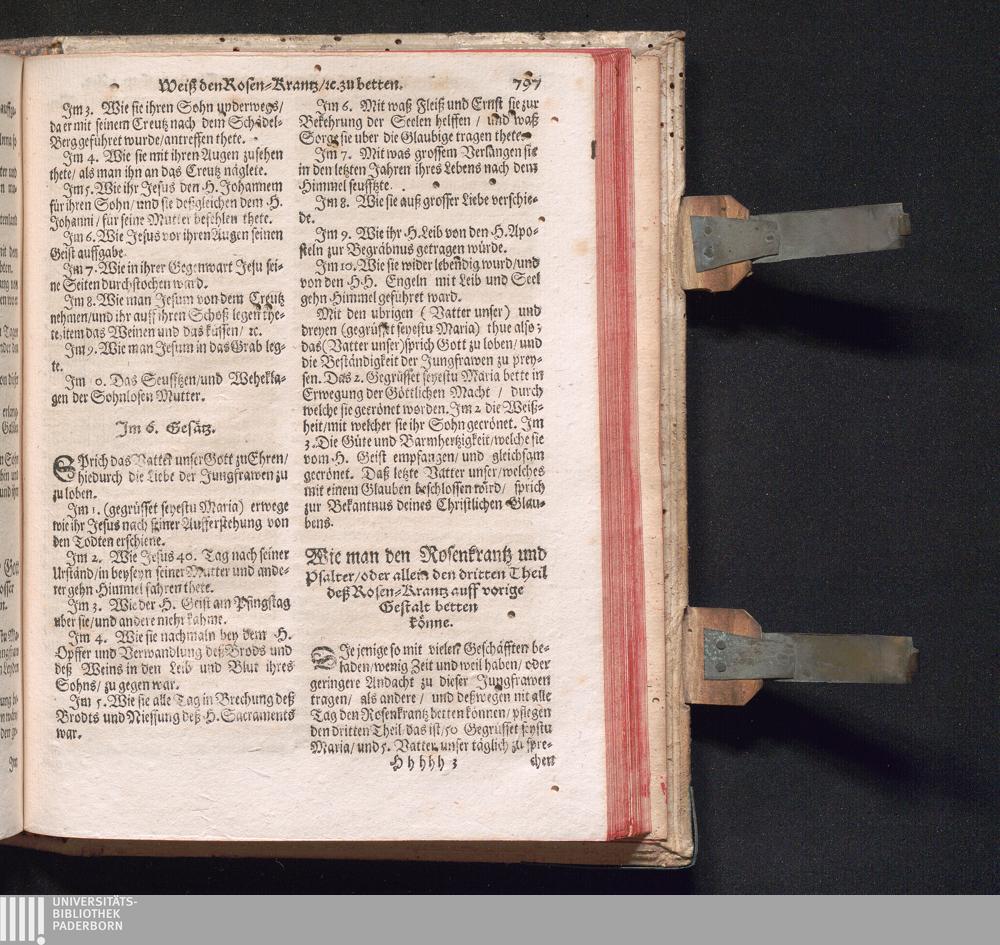 Weiß den Rosen-Krantz/ ꝛc. zu betten. 797
Im 3. Wie sie ihren Sohn underwegs/
da er mit seinem Creutz nach dem Schädel-
Berg geführet wurde/ antreffen thete.
Im 4. Wie sie mit ihren Augen zusehen
thete/ als man ihn an das Creutz näglete.
Im 5. Wie ihr Jesus den H. Johannem
für ihren Sohn/ und sie deßgleichen dem H.
Johanni/ für seine Mutter befehlen thete.
Im 6. Wie Jesus vor ihren Augen seinen
Geist auffgabe.
Im 7. Wie in ihrer Gegenwart Jesu sei-
ne Seiten durchstochen ward.
Im 8. Wie man Jesum von dem Creutz
nehmen/ und ihr auff ihren Schoß legen the-
te: item das Weinen und das küssen/ ꝛc.
Im 9. Wie man Jesum in das Grab leg-
te.
Im 10. Das Seufftzen/ und Wehekla-
gen der Sohnlosen Mutter.
Im 6. Gesätz.
SPrich das Vatter unser Gott zu Ehren/
hiedurch die Liebe der Jungfrawen zu
zu loben.
Im 1. (gegrüsset seyestu Maria) erwege
wie ihr Jesus nach seiner Aufferstehung von
den Todten erschiene.
Im 2. Wie Jesus 40. Tag nach seiner
Urständ/ in beyseyn seiner Mutter und ande-
rer gehn Himmel fahren thete.
Im 3. Wie der H. Geist am Pfingstag
uber sie/ und andere mehr kahme.
Im 4. Wie sie nachmaln bey dem H.
Opffer und Verwandlung deß Brods und
deß Weins in den Leib und Blut ihres
Sohns/ zu gegen war.
Im 5. Wie sie alle Tag in Brechung deß
Brodts und Niessung deß H. Sacraments
war.
Im 6. Mit waß Fleiß und Ernst sie zur
Bekehrung der Seelen helffen / und waß
Sorg sie uber die Glaubige tragen thete.
Im 7. Mit was grossem Verlangen sie
in den letzten Jahren ihres Lebens nach dem
Himmel seufftzte.
Im 8. Wie sie auß grosser Liebe verschie-
de.
Im 9. Wie ihr H. Leib von den H. Apo-
steln zur Begräbnus getragen würde.
Im 10. Wie sie wider lebendig wurd/ und
von den HH. Engeln mit Leib und Seel
gehn Himmel geführet ward.
Mit den ubrigen ( Vatter unser) und
dreyen (gegrüsset seyestu Maria) thue also;
das (Vatter unser) sprich Gott zu loben/ und
die Beständigkeit der Jungfrawen zu prey-
sen. Das 2. Gegrüsset seyestu Maria bette in
Erwegung der Göttlichen Macht / durch
welche sie gecrönet worden. Im 2 die Weiß-
heit/ mit welcher sie ihr Sohn gecrönet. Im
3. Die Güte und Barmhertzigkeit/ welche sie
vom H. Geist empfangen/ und gleichsam
gecrönet. Daß letzte Vatter unser/ welches
mit einem Glauben beschlossen würd/ sprich
zur Bekantnus deines Christlichen Glau-
bens.
Wie man den Rosenkrantz und
Psalter/ oder allein den dritten Theil
deß Rosen-Krantz auff vorige
Gestalt betten
könne.
DIe jenige so mit vielen Geschäfften be-
laden/ wenig Zeit und weil haben/ oder
geringere Andacht zu dieser Jungfrawen
tragen/ als andere / und deßwegen nit alle
Tag den Rosenkrantz betten können/ pflegen
den dritten Theil/ das ist/ 50 Gegrüsset seystu
Maria/ und 5. Vatter unser täglich zu spre-
Hhhhh 3 chen
UNIVERSITÄTS-
BIBLIOTHEK
PADERBORN